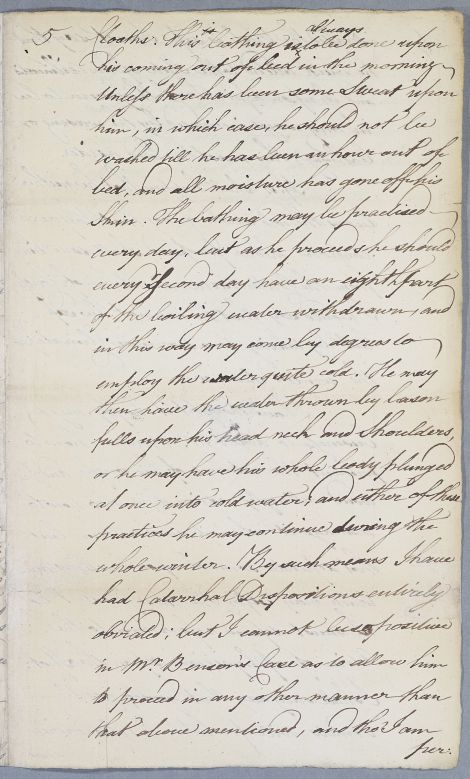 5
Always
Cloaths. This bathing is to be done upon
his coming out of bed in the morning
Unless there has been some Sweat upon
him, in which case, he should not be
washed till he has been an hour out of
bed, and all moisture has gone off his
Skin. The bathing may be practised
every day, but as he proceeds he should
every Second day have an eighth part
of the boiling water withdrawn, and
in this way may come by degrees to
employ the water quite cold. He may
then have the water thrown by bason
fulls upon his head neck and Shoulders,
or he may have his whole body plunged
at once into cold water; and either of these
practices he may continue during the
whole winter. By such means I have
had Catarrhal Dispositions entirely
obviated; but I cannot be so positive
in Mr. Benson's Case as to allow him
to proceed in any other manner than
that above mentioned, and tho I am
per: